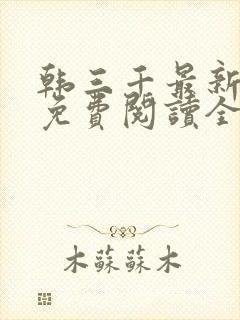 韩三千最新
免費閱讀全
木蘇蘇木